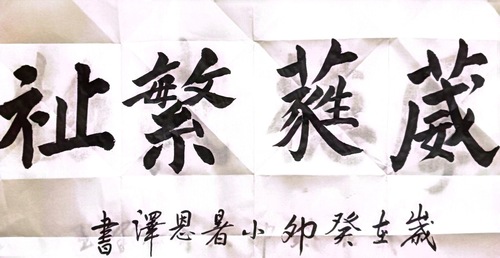 葳蕤繁祉
歲在癸卯小暑恩澤書